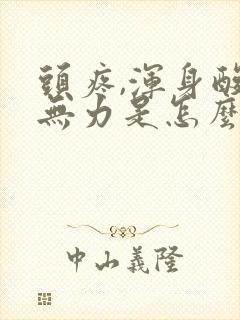 頭疼,渾身酸
無力是怎麼
中山義隆